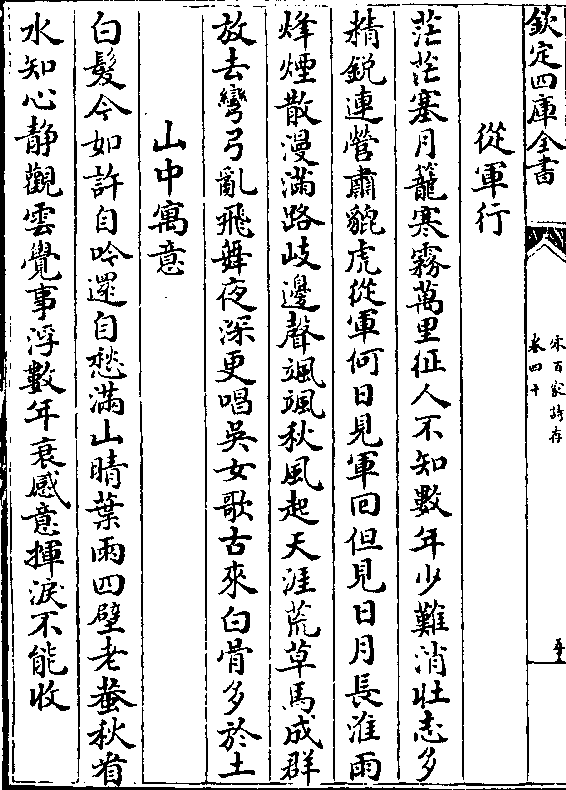 欽定四庫全書
宋百家詩存
卷四十
從軍行
茫茫塞月籠寒霧萬里征人不知數年少難消壯志多
精鋭連營肅貔虎從軍何日見軍回但見日月長淮雨
烽煙散漫滿路岐邊聲颯颯秋風起天涯荒草馬成群
放去彎弓亂飛舞夜深更唱吳女歌古來白骨多於土
山中寓意
白髮今如許自吟還自愁滿山晴葉雨四壁老蛬秋看
水知心靜觀雲覺事浮數年衰感意揮淚不能收